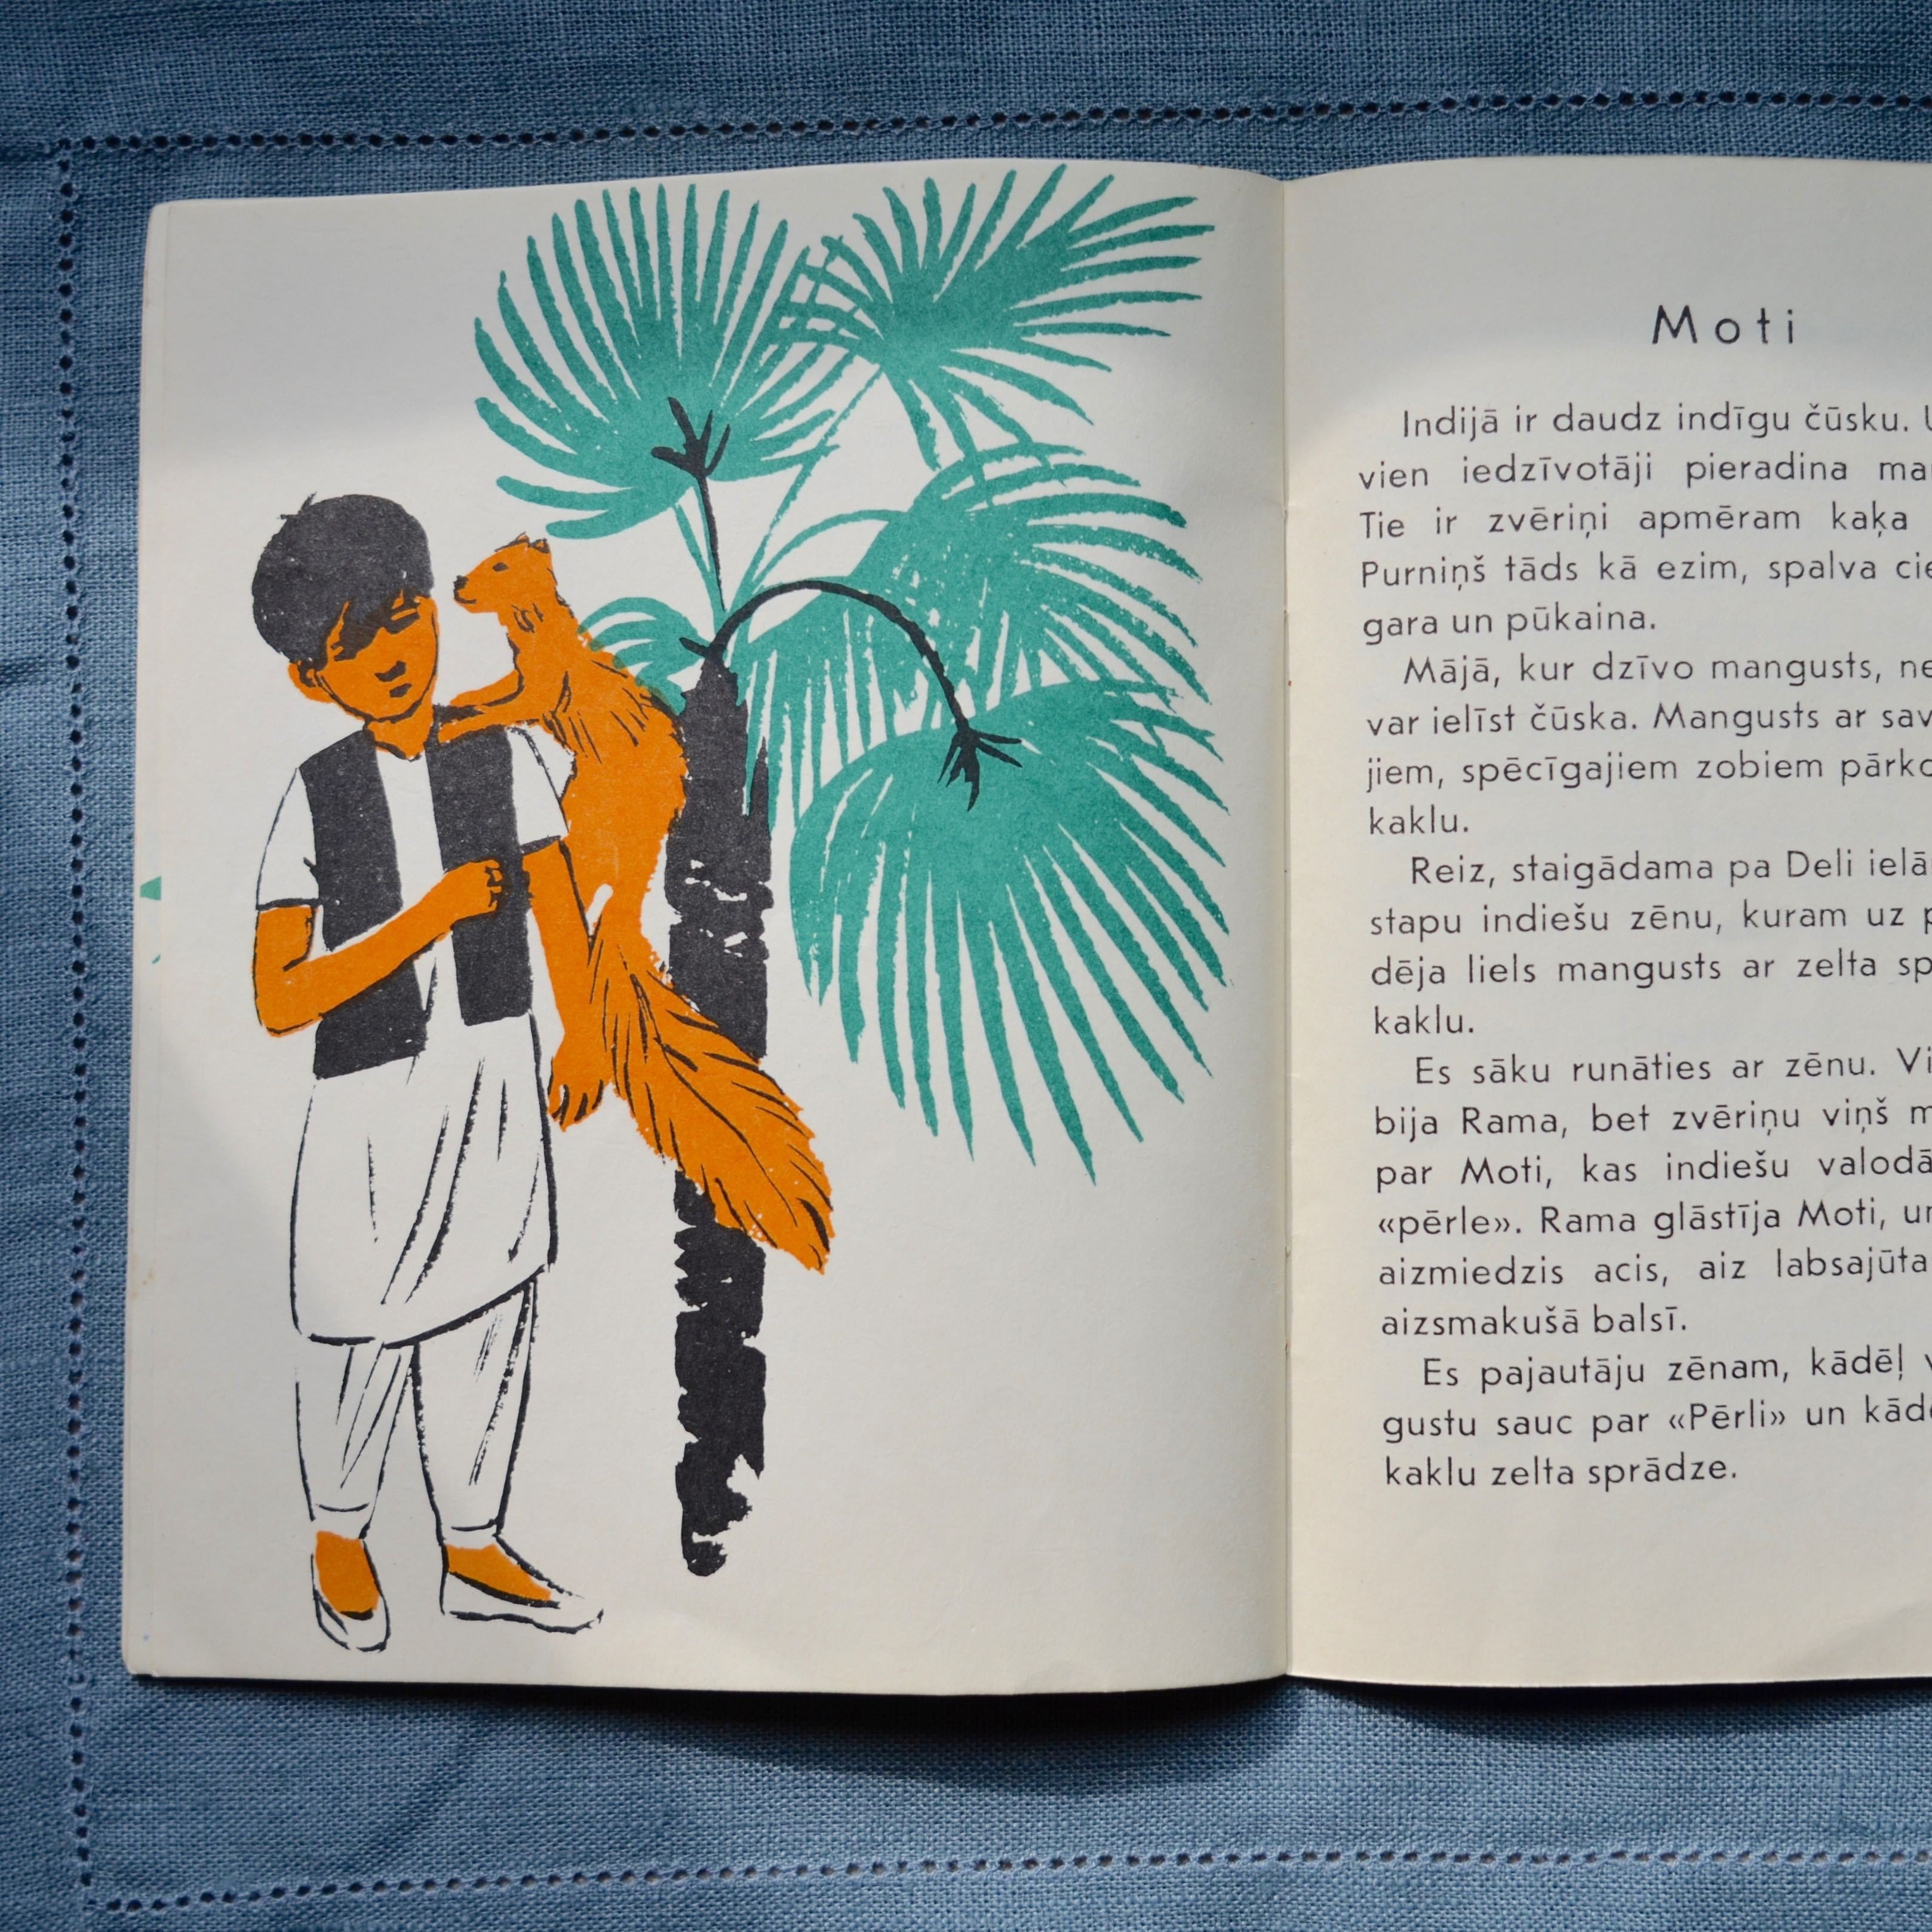 Moti
Indijā ir daudz indīgu čūsku.
vien iedzīvotāji pieradina
Tie ir zvēriņi apmēram kaķa
Purniņš tāds kā ezim, spalva
gara un pūkaina.
Mājā, kur dzīvo mangusts,
var ielīst čūska. Mangusts ar
jiem, spēcīgajiem zobiem
kaklu.
Reiz, staigādama pa Deli
stapu indiešu zēnu, kuram uz
dēja liels mangusts ar zelta
kaklu.
Es sāku runāties ar zēnu.
bija Rama, bet zvēriņu viņš
par Moti, kas indiešu valodā
«pērle». Rama glāstīja Moti,
aizmiedzis acis, aiz
aizsmakušā balsī.
Es pajautāju zēnam, kādēļ
gustu sauc par «Pērli» un
kaklu zelta sprādze.